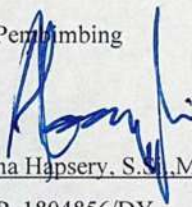 Pembimbing
na Hapsery, S.Si.,M
P. 1804856/DY